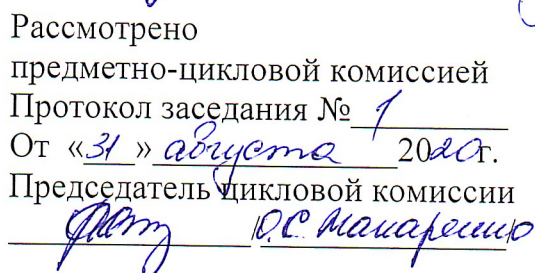 Рассмотрено
предметно-цикловой комиссией
Протокол заседания № 1
От «31» августа 2020г.
Председатель цикловой комиссии
/О.С. Макаренко